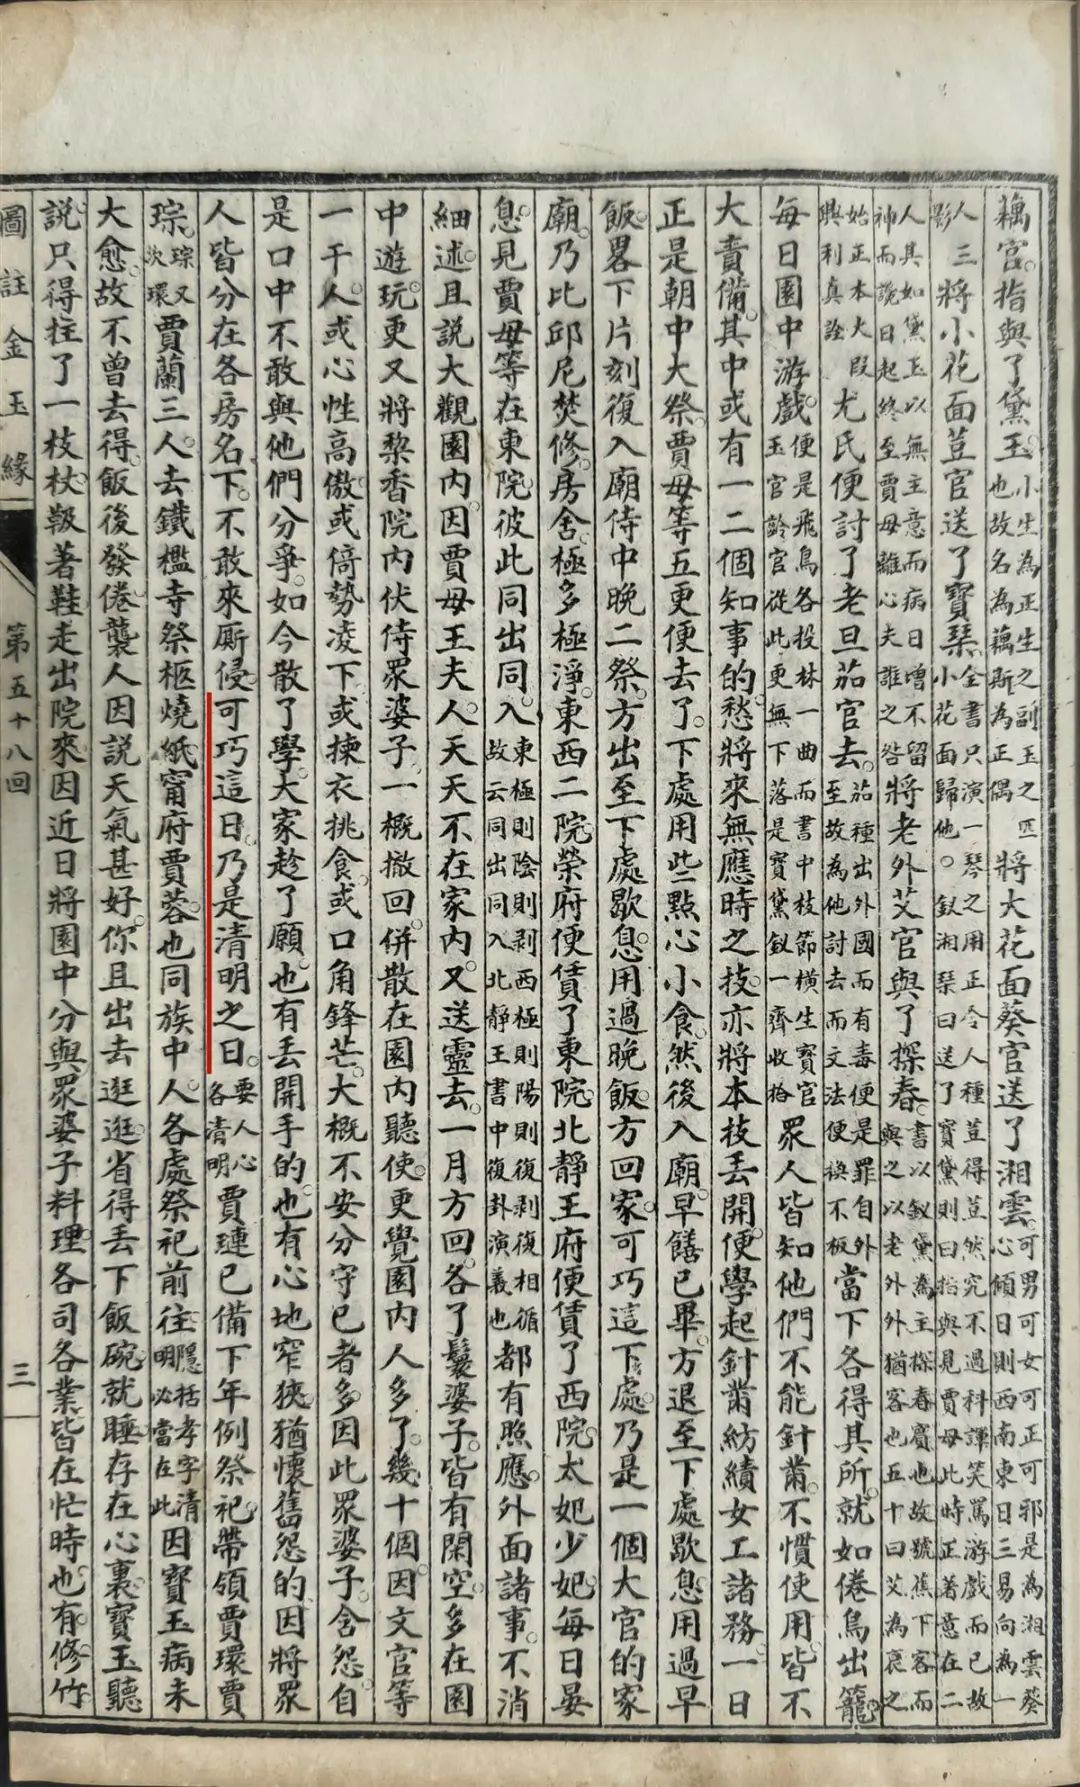 藕官。指與了黛玉。小生為正生之副玉之匹也故名為藕斯為正偶將大花面葵官送了湘雲。可男可女可正可邪是為湘雲葵心傾日則西南東日三易向為一
人影三將小花面荳官送了寶琴全書只演一琴之用正令人種荳得荳然究不過科諢笑罵游戲而已故小花面歸他。釵湘琴曰送了寶黛則曰指與見賈母此時正著意在二
人其如黛玉以無主意而病日增不留神而說日起終至賈母離心夫誰之咎將老外艾官與了探春。書以釵黛為主探春賓也故號蕉下客而與之以老外外猶客也五十曰艾為衰之
始正本大段興利真詮尤氏便討了老旦茄官去。茄種出外國而有毒便是罪自外至故為他討去而文法便換不板當下各得其所。就如倦鳥出籠。
每日園中游戲。便是飛鳥各投林一曲而書中枝節橫生寶官玉官齡官從此更無下落是寶黛釵一齊收拾眾人皆知他們不能針黹。不慣使用。皆不
大責備。其中或有一二個知事的。愁將來無應時之技。亦將本技丟開。便學起針黹紡績女工諸務。一日
正是朝中大祭。賈母等五更便去了。下處用些點心小食。然後入廟。早饍已畢。方退至下處歇息。用過早
飯。畧下片刻。復入廟侍中晚二祭。方出至下處歇息。用過晚飯。方回家。可巧這下處。乃是一個大官的家
廟。乃比邱尼焚修。房舍極多極淨。東西二院。榮府便賃了東院。北靜王府便賃了西院。太妃少妃。每日晏
息。見賈母等在東院。彼此同出同入。東極則陰則剥西極則陽則復剥復相循故云同出同入北靜王書中復卦演義也都有照應。外面諸事。不消
細述。且說大觀園內。因賈母王夫人。天天不在家內。又送靈去。一月方回。各了鬟婆子。皆有閑空。多在園
中遊玩。更又將棃香院內伏侍眾婆子。一概撤回。併散在園內聽使。更覺園內人多了幾十個。因文官等
一干人。或心性高傲。或倚勢凌下。或揀衣挑食。或口角鋒芒。大概不安分守己者多。因此眾婆子含怨。自
是口中不敢與他們分爭。如今散了學。大家趁了願。也有丟開手的。也有心地窄狹。猶懷舊怨的。因將眾
人皆分在各房名下。不敢來厮侵。可巧這日。乃是清明之日。要人心各清明賈璉已備下年例祭祀。帶領賈環賈
琮。琮又次環賈蘭三人。去鐵檻寺祭柩燒紙。甯府賈蓉。也同族中人。各處祭祀前往。隱括孝字清明必當在此因寶玉病未
大愈。故不曾去得。飯後發倦。襲人因說天氣甚好。你且出去逛逛。省得丟下飯碗。就睡存在心裏。寶玉聽
說。只得拄了一枝杖。靸著鞋。走出院來。因近日將園中分與眾婆子料理。各司各業。皆在忙時。也有修竹。
圖註金玉緣
第五十八回
三